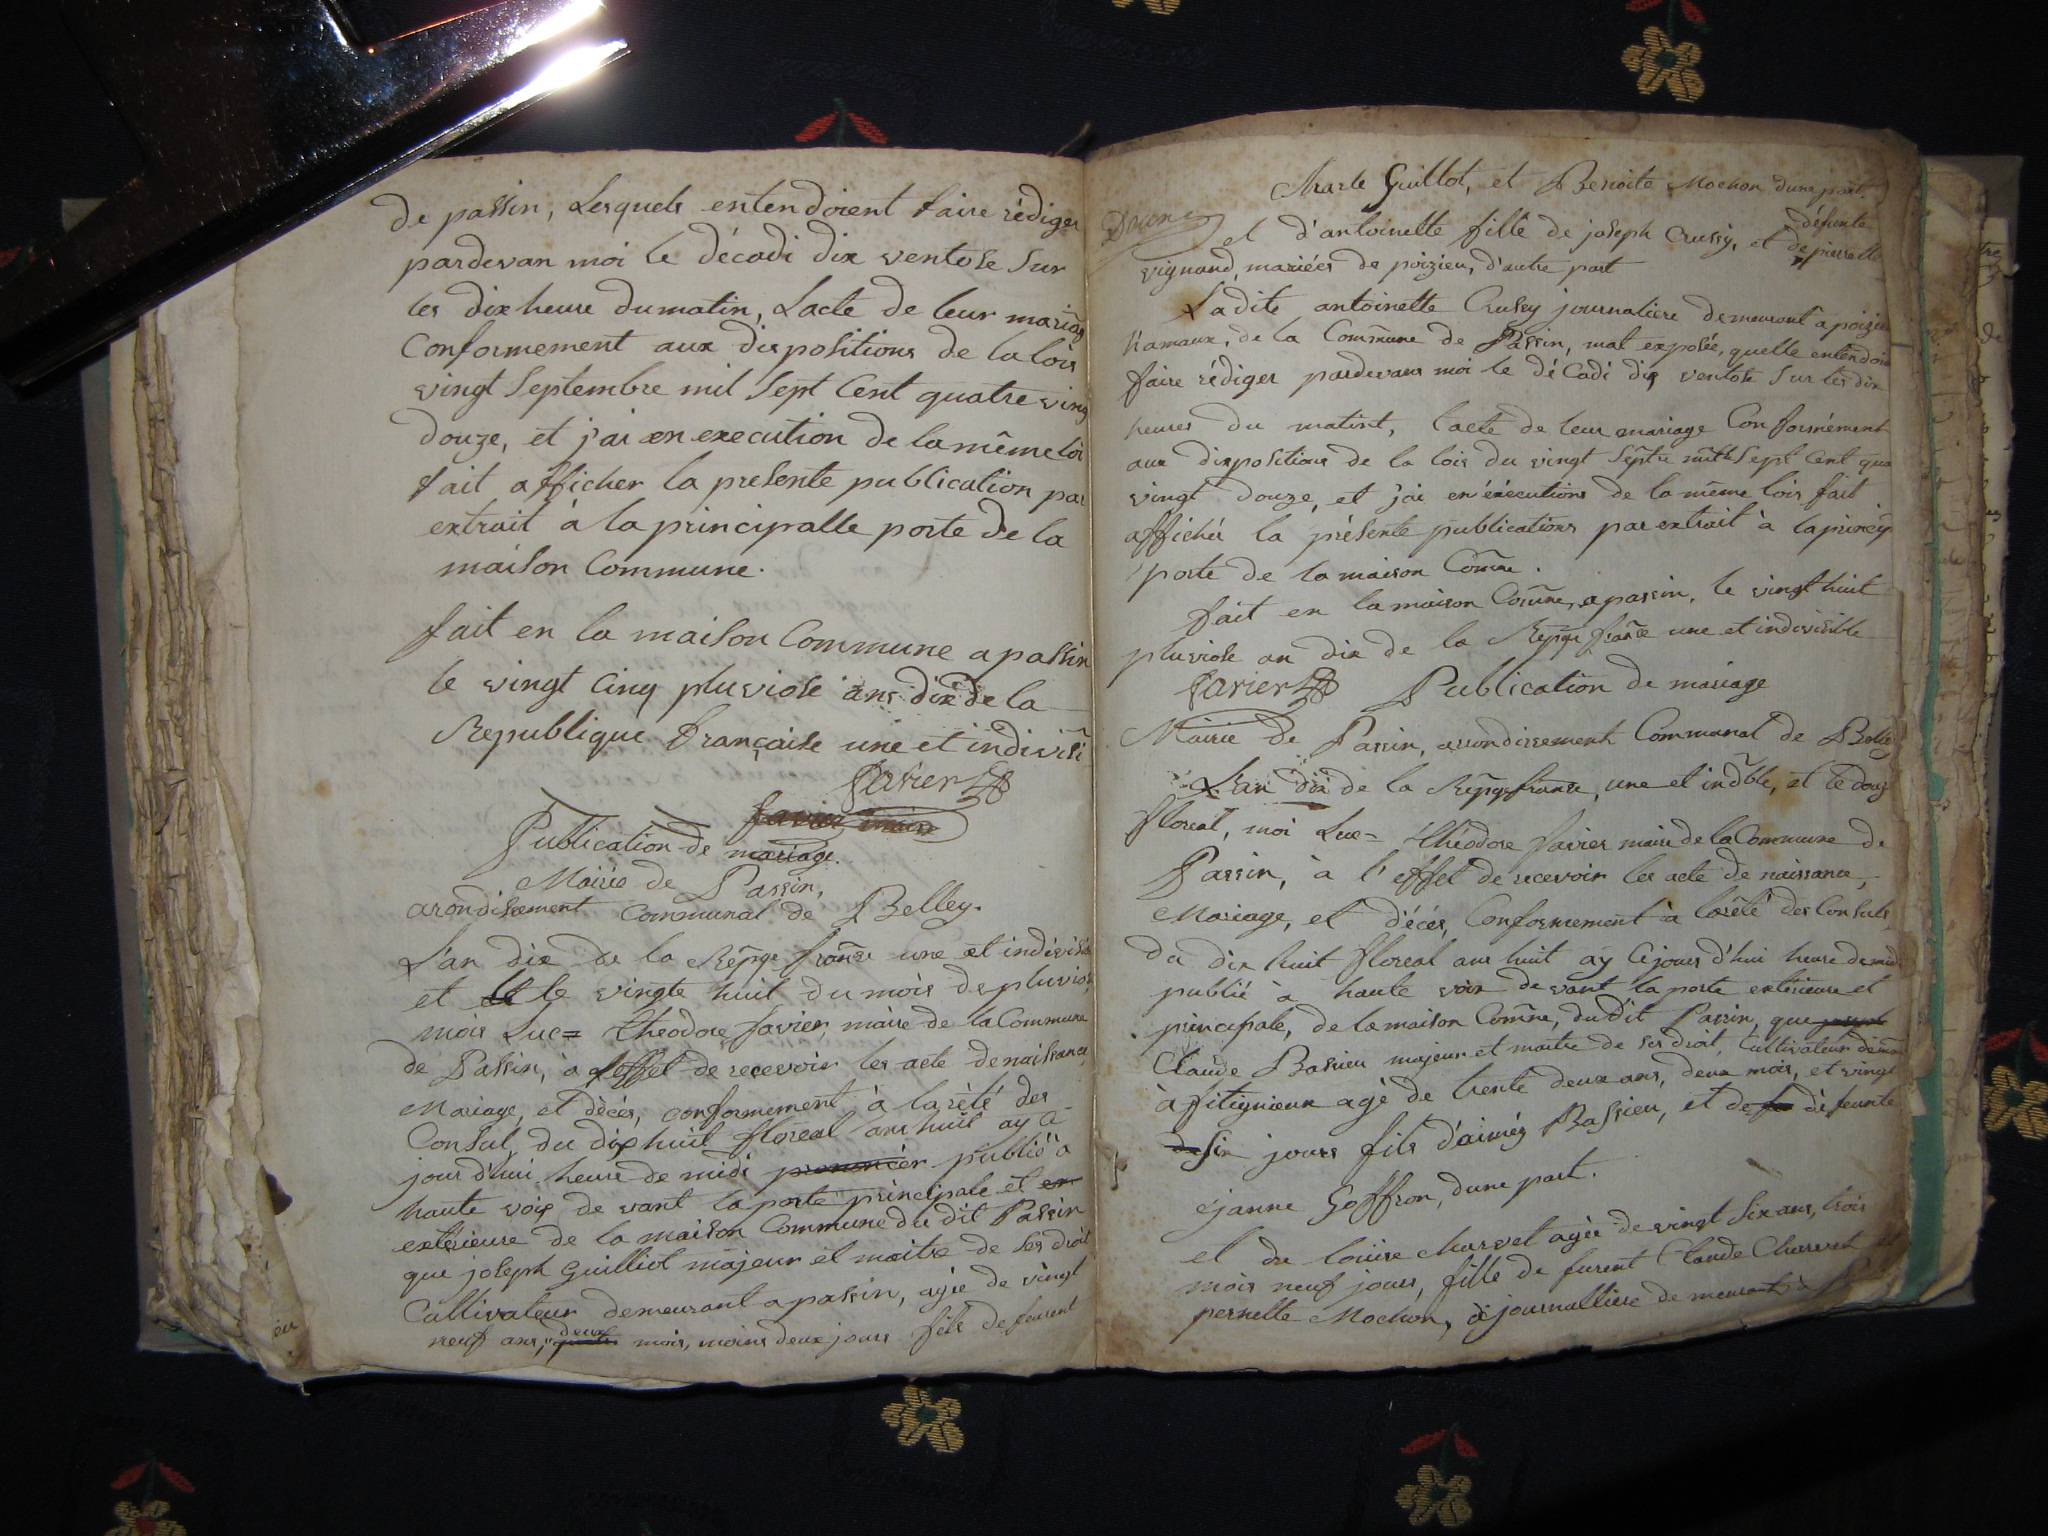 de passin, Lesquels entendoient faire rédiger
pardevan moi le décadi dix ventose sur
les dix heure du matin, Lacte de leur mariag
Conformement aux dispositions de la lois
vingt Septembre mil Sept Cent quatre ving
douze, et j'ai en execution de la même loi
fait afficher la presente publication par
extrait à la principalle porte de la
maison Commune.
fait en la maison Commune a passin
le vingt cinq pluviose ans dix de la
Republique française une et indivisi
favier
favier maire
Publication de mariage.
Mairie de Passin,
arondisement Communal de Belley.
L'an dix de la Répq franse une et indivisi
et le le vingte huit du mois de pluvios
mois Luc= théodore favier, maire de la Commune
de Passin, à l'effet de recevoir les acte de naissance,
Mariage, et décés, conformement à larèté des
Consul du dix huit floreal ans huit ay ce
jour d'hui heure de midi prononcer publié à
haute voix de vant la porte principale et en
extérieure de la maison Commune du dit Passin
que joseph Guilliot majeur et maitre de ses droit
Cultivateur demeurant a passin, agée de vingt
neuf ans, deux mois, moins deux jours fils de feurent
Guillot, et Benoite Mochon dune part.
et d'antoinette fille de joseph Crussy, et défunte de pierrette
vignand, mariées de poizieu, d'autre part
Ladite antoinette Crussy journaliere demeurant à poizieu
hamaux, de la Commune de Passin, mat exposée, quelle entendoi
faire rédiger pardevans moi le décadi dix ventose sur les dix
heures du matint, lacte de leur mariage Conformément
aux dispositions de la lois du vingt Septre mil Sept Cent qua
vingt douze, et j'ai en éxécutions de la même lois fait
affiché la présente publications par extrait à la princip
porte de la maison Comne.
fait en la maison Comune, a passin, le vingt huit
pluviose an dix de la Répqe franse une et indivisible
favier Publication de mariage
Mairie de Passin, arrondissement Communal de Belle
L'an dix de la Répqe franse, une et indble, et le douz
floreal, moi Luc= théodore favier maire de la Commune de
Passin, à l'effet de recevoir les acte de naissance,
Mariage, et décés, Conformement à larèté des Consuls
du dix huit floreal ans huit ay Ce jours d'hui heure de midi
publié à haute voix de vant la porte extérieure et
principale, de la maison Comne, du dit Passin, que joseph
Claude Bassieu majeur et maitre de ses droit, Cultivateur demeu
à fitignieux agé de trente deux ans, deux mois, et vingt
six jours fils d'aiméz Bassieu, et de défeunte
ejanne Goffron, dune part.
et de loüise Charvet agée de vingt six ans, trois
mois neuf jours, fille de furent Claude Charvet et
pernette Mochon, journalliere demeurant à